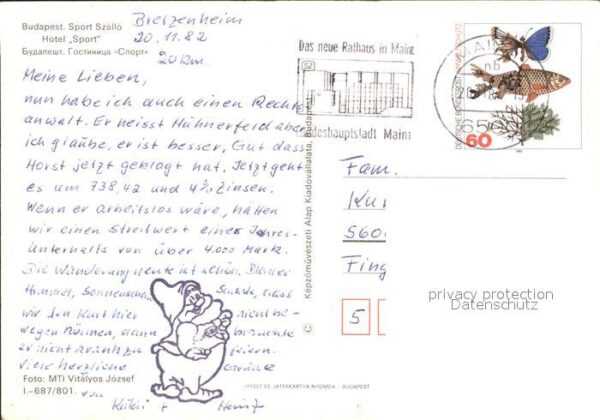 Budapest. Sport Szálló
Hotel „Sport"
Будапешт. Гостиница «Спорт»
Bretzenheim
20.11.82
20 km
Meine Lieben,
nun habe ich auch einen Rechts-
anwalt. Er heisst Hühnerfeld aber
ich glaube, er ist besser, Gut dass
Horst jetzt geklagt hat. Jetzt geht
es um 738,42 und 4% Zinsen.
Wenn er arbeitslos wäre, hätten
wir einen Streitwert eines Jahres-
unterhalts von über 4.000 Mark.
Die Wanderung heute ist schön. Blauer
Himmel, Sonnenschein Schade, dass
wir den Kurt hier nicht be-
wegen können, dann brauchte
er nicht krank zu feiern.
Viele herzliche Grüsse
von
Käthi + Heinz
Foto: MTI Vitályos József
I.–687/801.
Das neue Rathaus in Mainz
Landeshauptstadt Mainz
MAIN
650
DEUTSCHE BUNDESPOST
60
Képzőművészeti Alap Kiadóvállalata, Budapest
Fam.
Ku
560
Fing
5
privacy protection
Datenschutz
ÉS JÁTÉKKÁRTYA NYOMDA - BUDAPEST